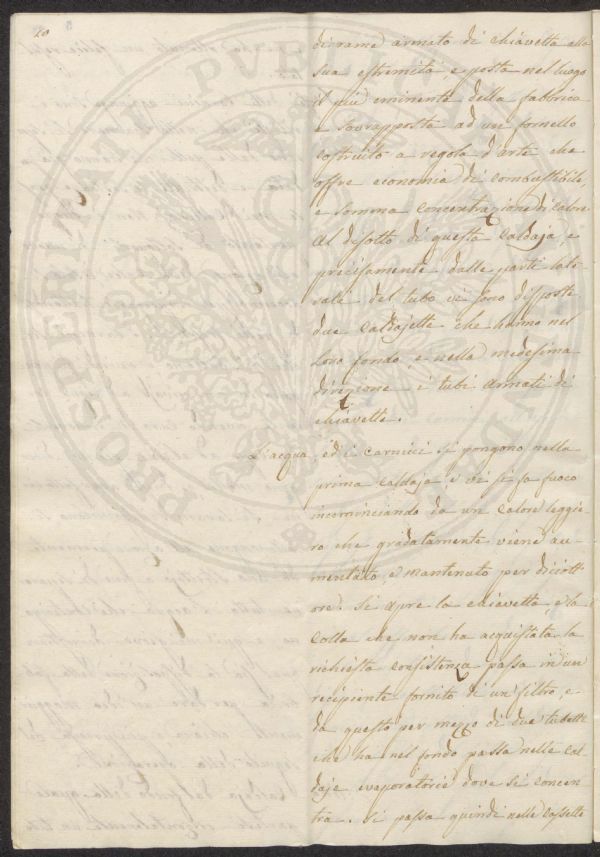 20
di rame armato di chiavetta alla
sua estremità e posta nel luogo
il più eminente della fabbrica
e sovrapposta ad un fornello
costruito a regola d'arte che
offre economia di combustibile,
e somma concentrazione di calore
Al disotto di questa caldaja, e
precisamente dalle parti late-
rale del tubo vi sono disposte
due caldajette che hanno nel
loro fondo, e nella medesima
direzione i tubi armati di
chiavette.
L'acqua, ed i carnicci si pongono nella
prima caldaja, e vi si fa fuoco
incominciando da un calore leggie-
ro che gradatamente viene au-
mentato, e mantenuto per diciott'
ore. Si apre la chiavetta, e la
Colla che non ha acquistata la
richiesta consistenza passa in un
recipiente fornito di un filtro, e
da questo per mezzo di due tubetti
che ha nel fondo passa nelle cal-
daje evaporatorie dove si concen-
tra. Si passa quindi nelle cassette
PROSPERITATI PUBLICAE